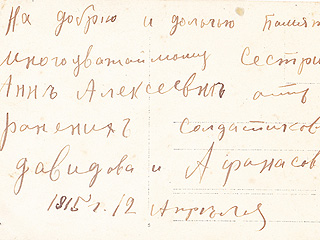 На добрю и долгью Памят
многоуважаймому Сестри
Аннъ Алексеевнъ отъ
раненихъ солдатиков
Давидова и Афанасов
1915 г. 12 Апреля